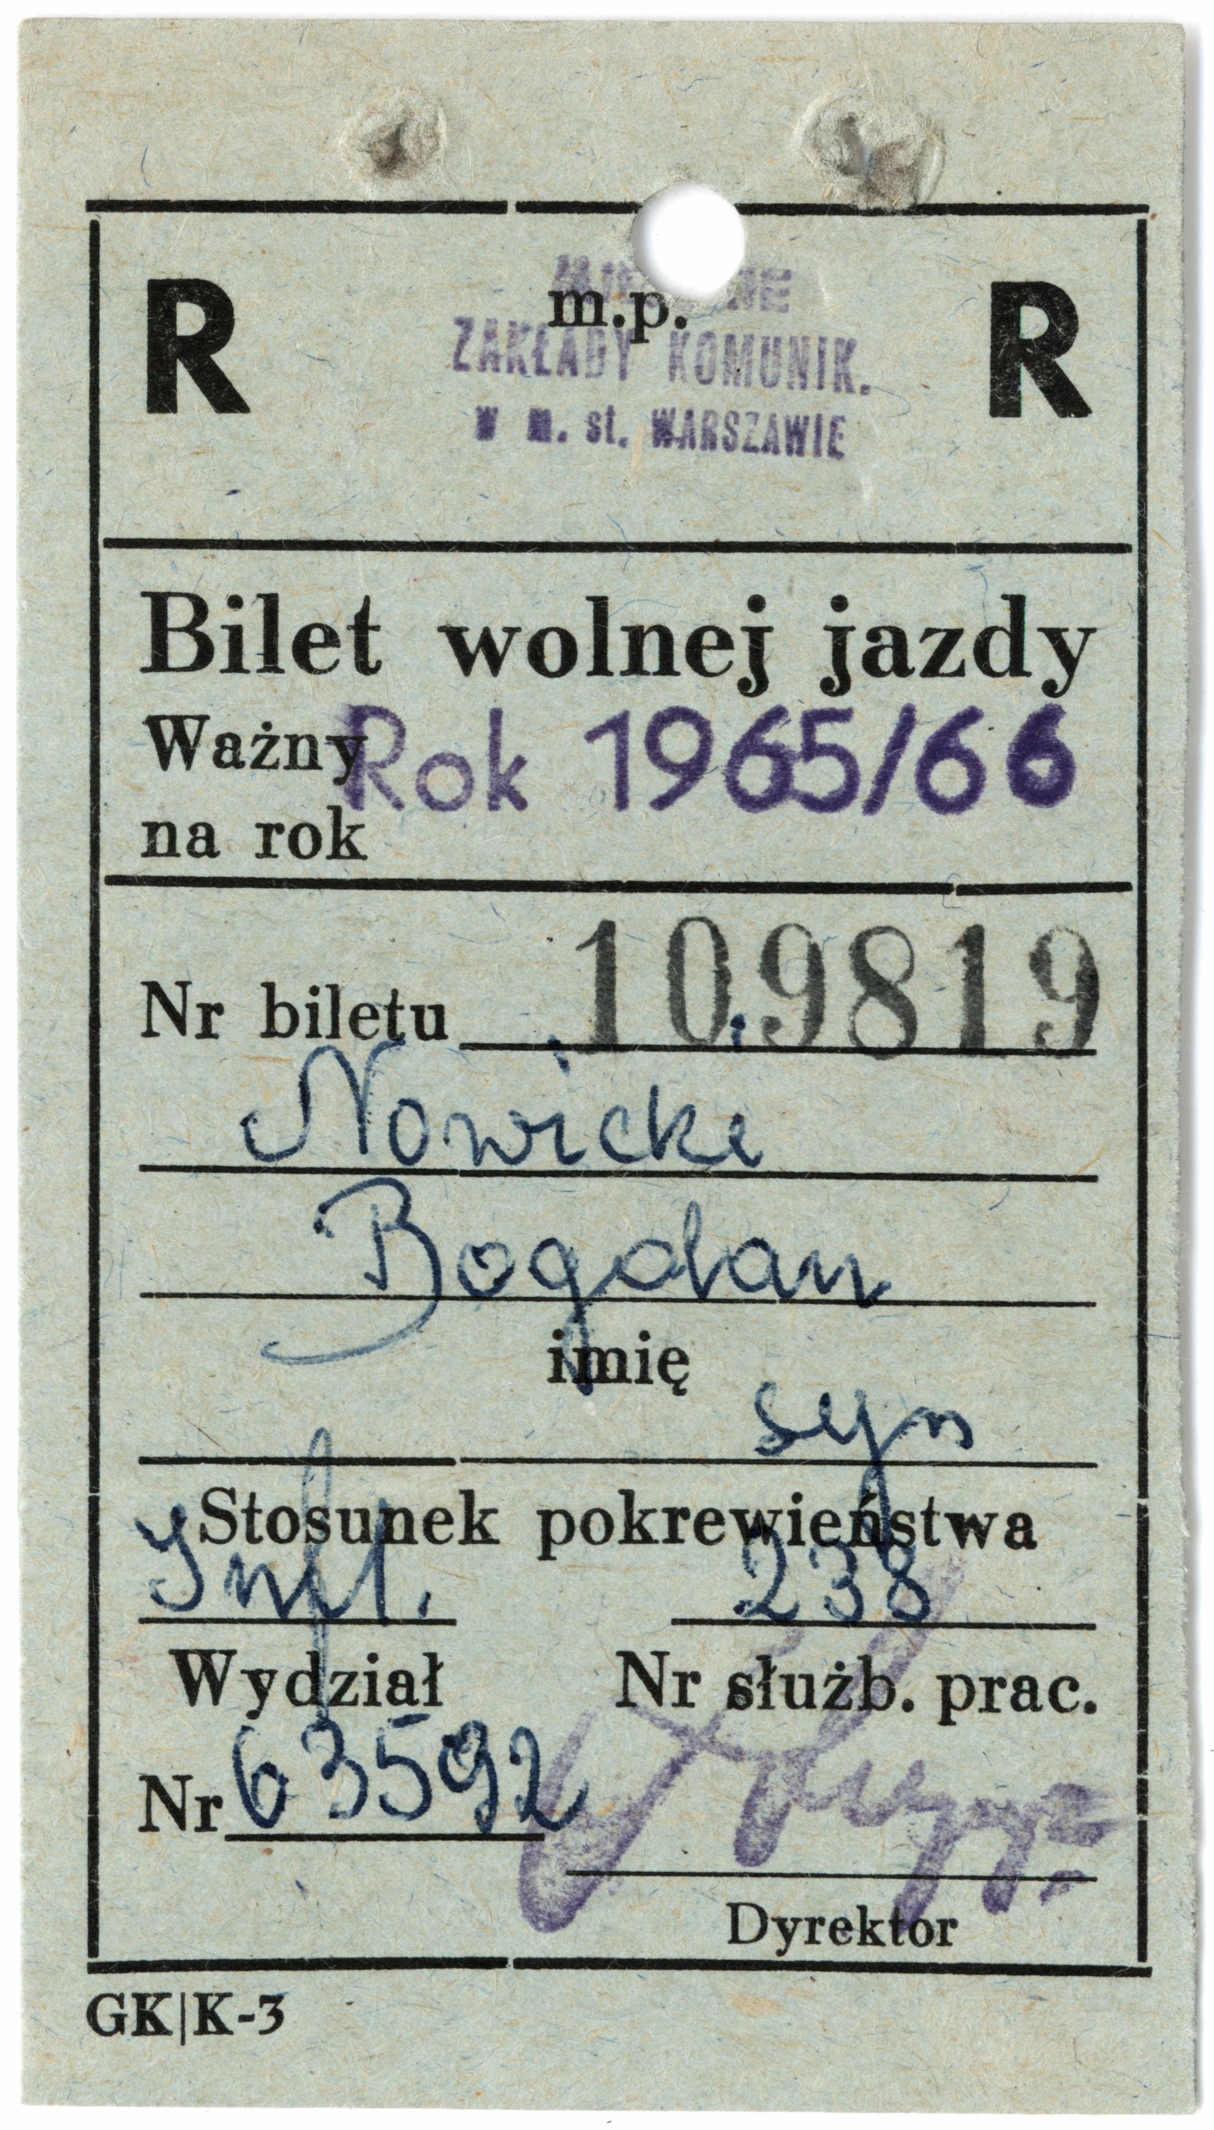 R m.p. R
ZAKŁADY KOMUNIK.
w m. st. WARSZAWIE
Bilet wolnej jazdy
Ważny Rok 1965/66
na rok
Nr biletu 109819
Nowicki
Bogdan
imię
syn
Stosunek pokrewieństwa
238
Wydział Nr służb. prac.
Nr 63592
Dyrektor
GK|K-3